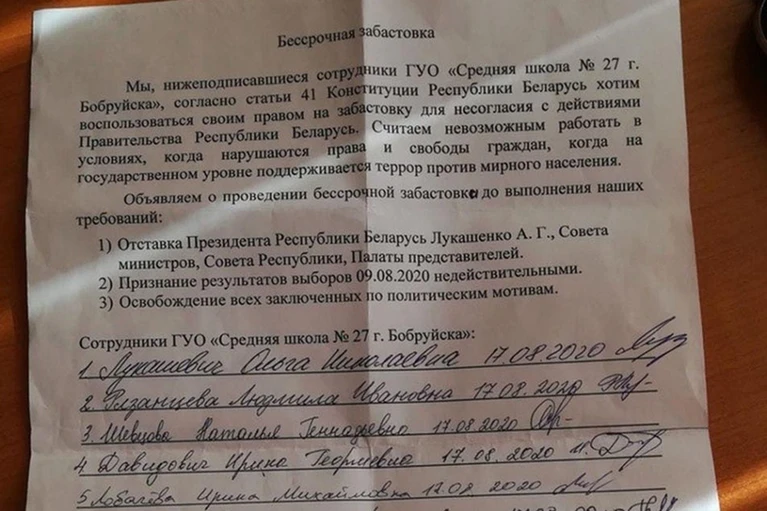 Бессрочная забастовка
Мы, нижеподписавшиеся сотрудники ГУО «Средняя школа № 27 г.
Бобруйска», согласно статьи 41 Конституции Республики Беларусь хотим
воспользоваться своим правом на забастовку для несогласия с действиями
Правительства Республики Беларусь. Считаем невозможным работать в
условиях, когда нарушаются права и свободы граждан, когда на
государственном уровне поддерживается террор против мирного населения.
Объявляем о проведении бессрочной забастовки до выполнения наших
требований:
1) Отставка Президента Республики Беларусь Лукашенко А. Г., Совета
министров, Совета Республики, Палаты представителей.
2) Признание результатов выборов 09.08.2020 недействительными.
3) Освобождение всех заключенных по политическим мотивам.
Сотрудники ГУО «Средняя школа № 27 г. Бобруйска»:
1 Лукашевич Ольга Николаевна 17.08.2020
2. Рязанцева Людмила Ивановна 17.08.2020
3. Шевцова Наталья Геннадьевна 17.08.2020
4 Давидович Ирина Георгиевна 17.08.2020
5 Ирина Михайловна 17.08.2020